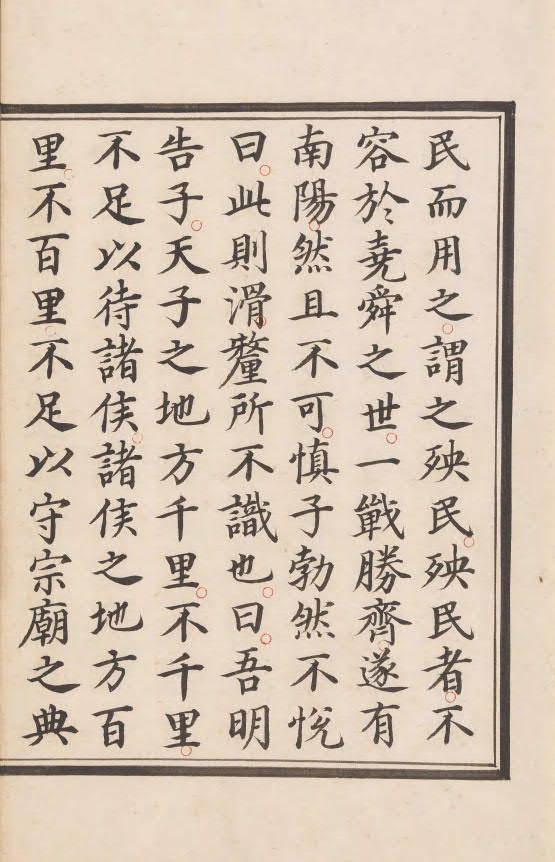 民而用之。謂之殃民。殃民者。不
容於堯舜之世。一戰勝齊遂有
南陽。然且不可。慎子勃然不悅
曰。此則滑。釐所不識也。曰。吾明
告子。天子之地方千里。不千里。
不足以待諸侯。諸侯之地方百
里。不百里。不足以守宗廟之典